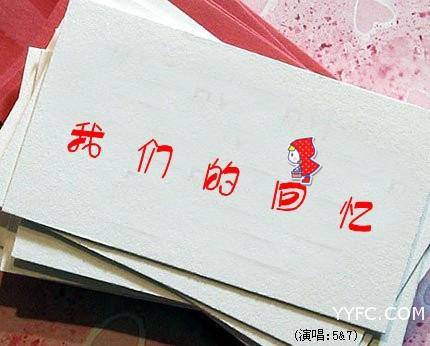 我们的回忆
YYFC.COM
(演唱:5&7)